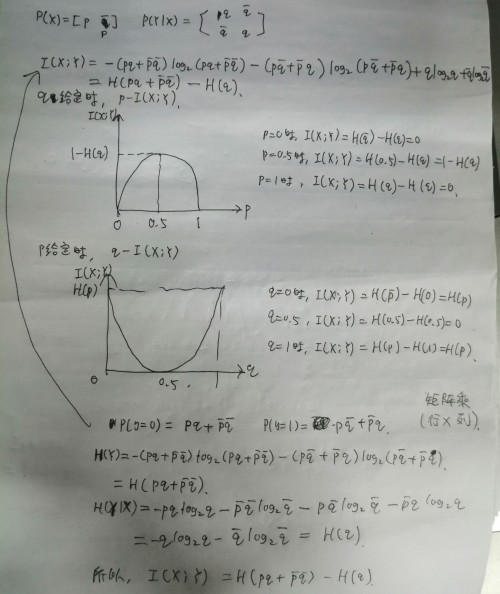 P(X)=[p p̄]    P(Y|X)=[q q̄
q̄ q]
I(X;Y)= -(pq+p̄q̄)log₂(pq+p̄q̄)-(pq̄+p̄q)log₂(pq̄+p̄q)+qlog₂q+q̄log₂q̄
= H(pq+p̄q̄)-H(q).
q给定时, p-I(X;Y).
I(X;Y)
1-H(q)
0 0.5 1 p
p=0时, I(X;Y)=H(q̄)-H(q)=0
p=0.5时, I(X;Y)=H(0.5)-H(q)=1-H(q)
p=1时, I(X;Y)=H(q)-H(q)=0.
p给定时, q-I(X;Y)
I(X;Y)
H(p)
0 0.5. q
q=0时, I(X;Y)=H(p̄)-H(0)=H(p)
q=0.5, I(X;Y)=H(0.5)-H(0.5)=0
q=1时, I(X;Y)=H(p)-H(1)=H(p).
矩阵乘
(行×列).
P(y=0)= pq+p̄q̄    P(y=1)= pq̄+p̄q.
H(Y)=-(pq+p̄q̄)log₂(pq+p̄q̄)-(pq̄+p̄q)log₂(pq̄+p̄q).
= H(pq+p̄q̄).
H(Y|X)=-pqlog₂q-p̄q̄log₂q̄-pq̄log₂q̄-p̄qlog₂q
=-qlog₂q-q̄log₂q̄ = H(q).
所以, I(X;Y)=H(pq+p̄q̄)-H(q).